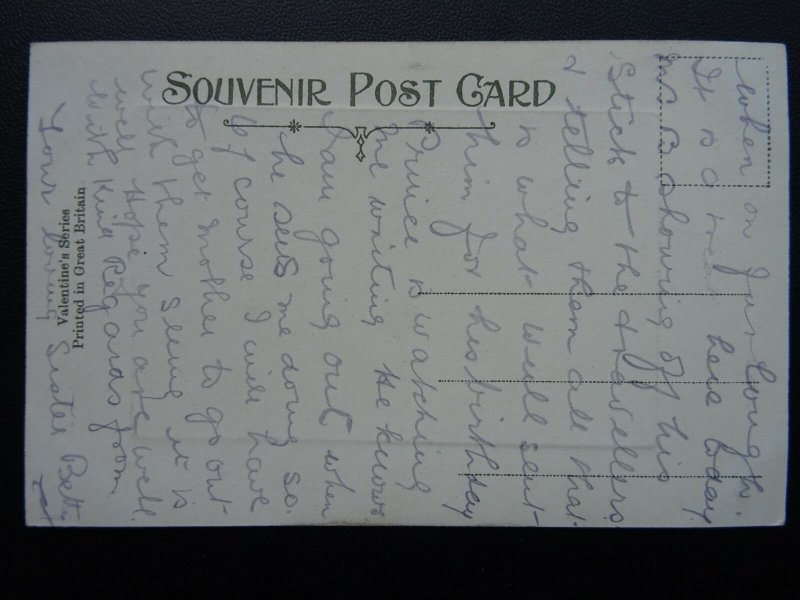 SOUVENIR POST CARD
Valentine's Series
Printed in Great Britain
when on furlough.
It is a treat here today
Mr B showing off his
Stick to the travellers
& telling them all that
is what Will sent
him for his birthday
Prince is watching
me writing He knows
I am going out when
he sees me doing so.
Of course I will have
to get Mother to go out
with them seeing it is
well Hope you are well
with Kind Regards from
Your loving Sister Pat